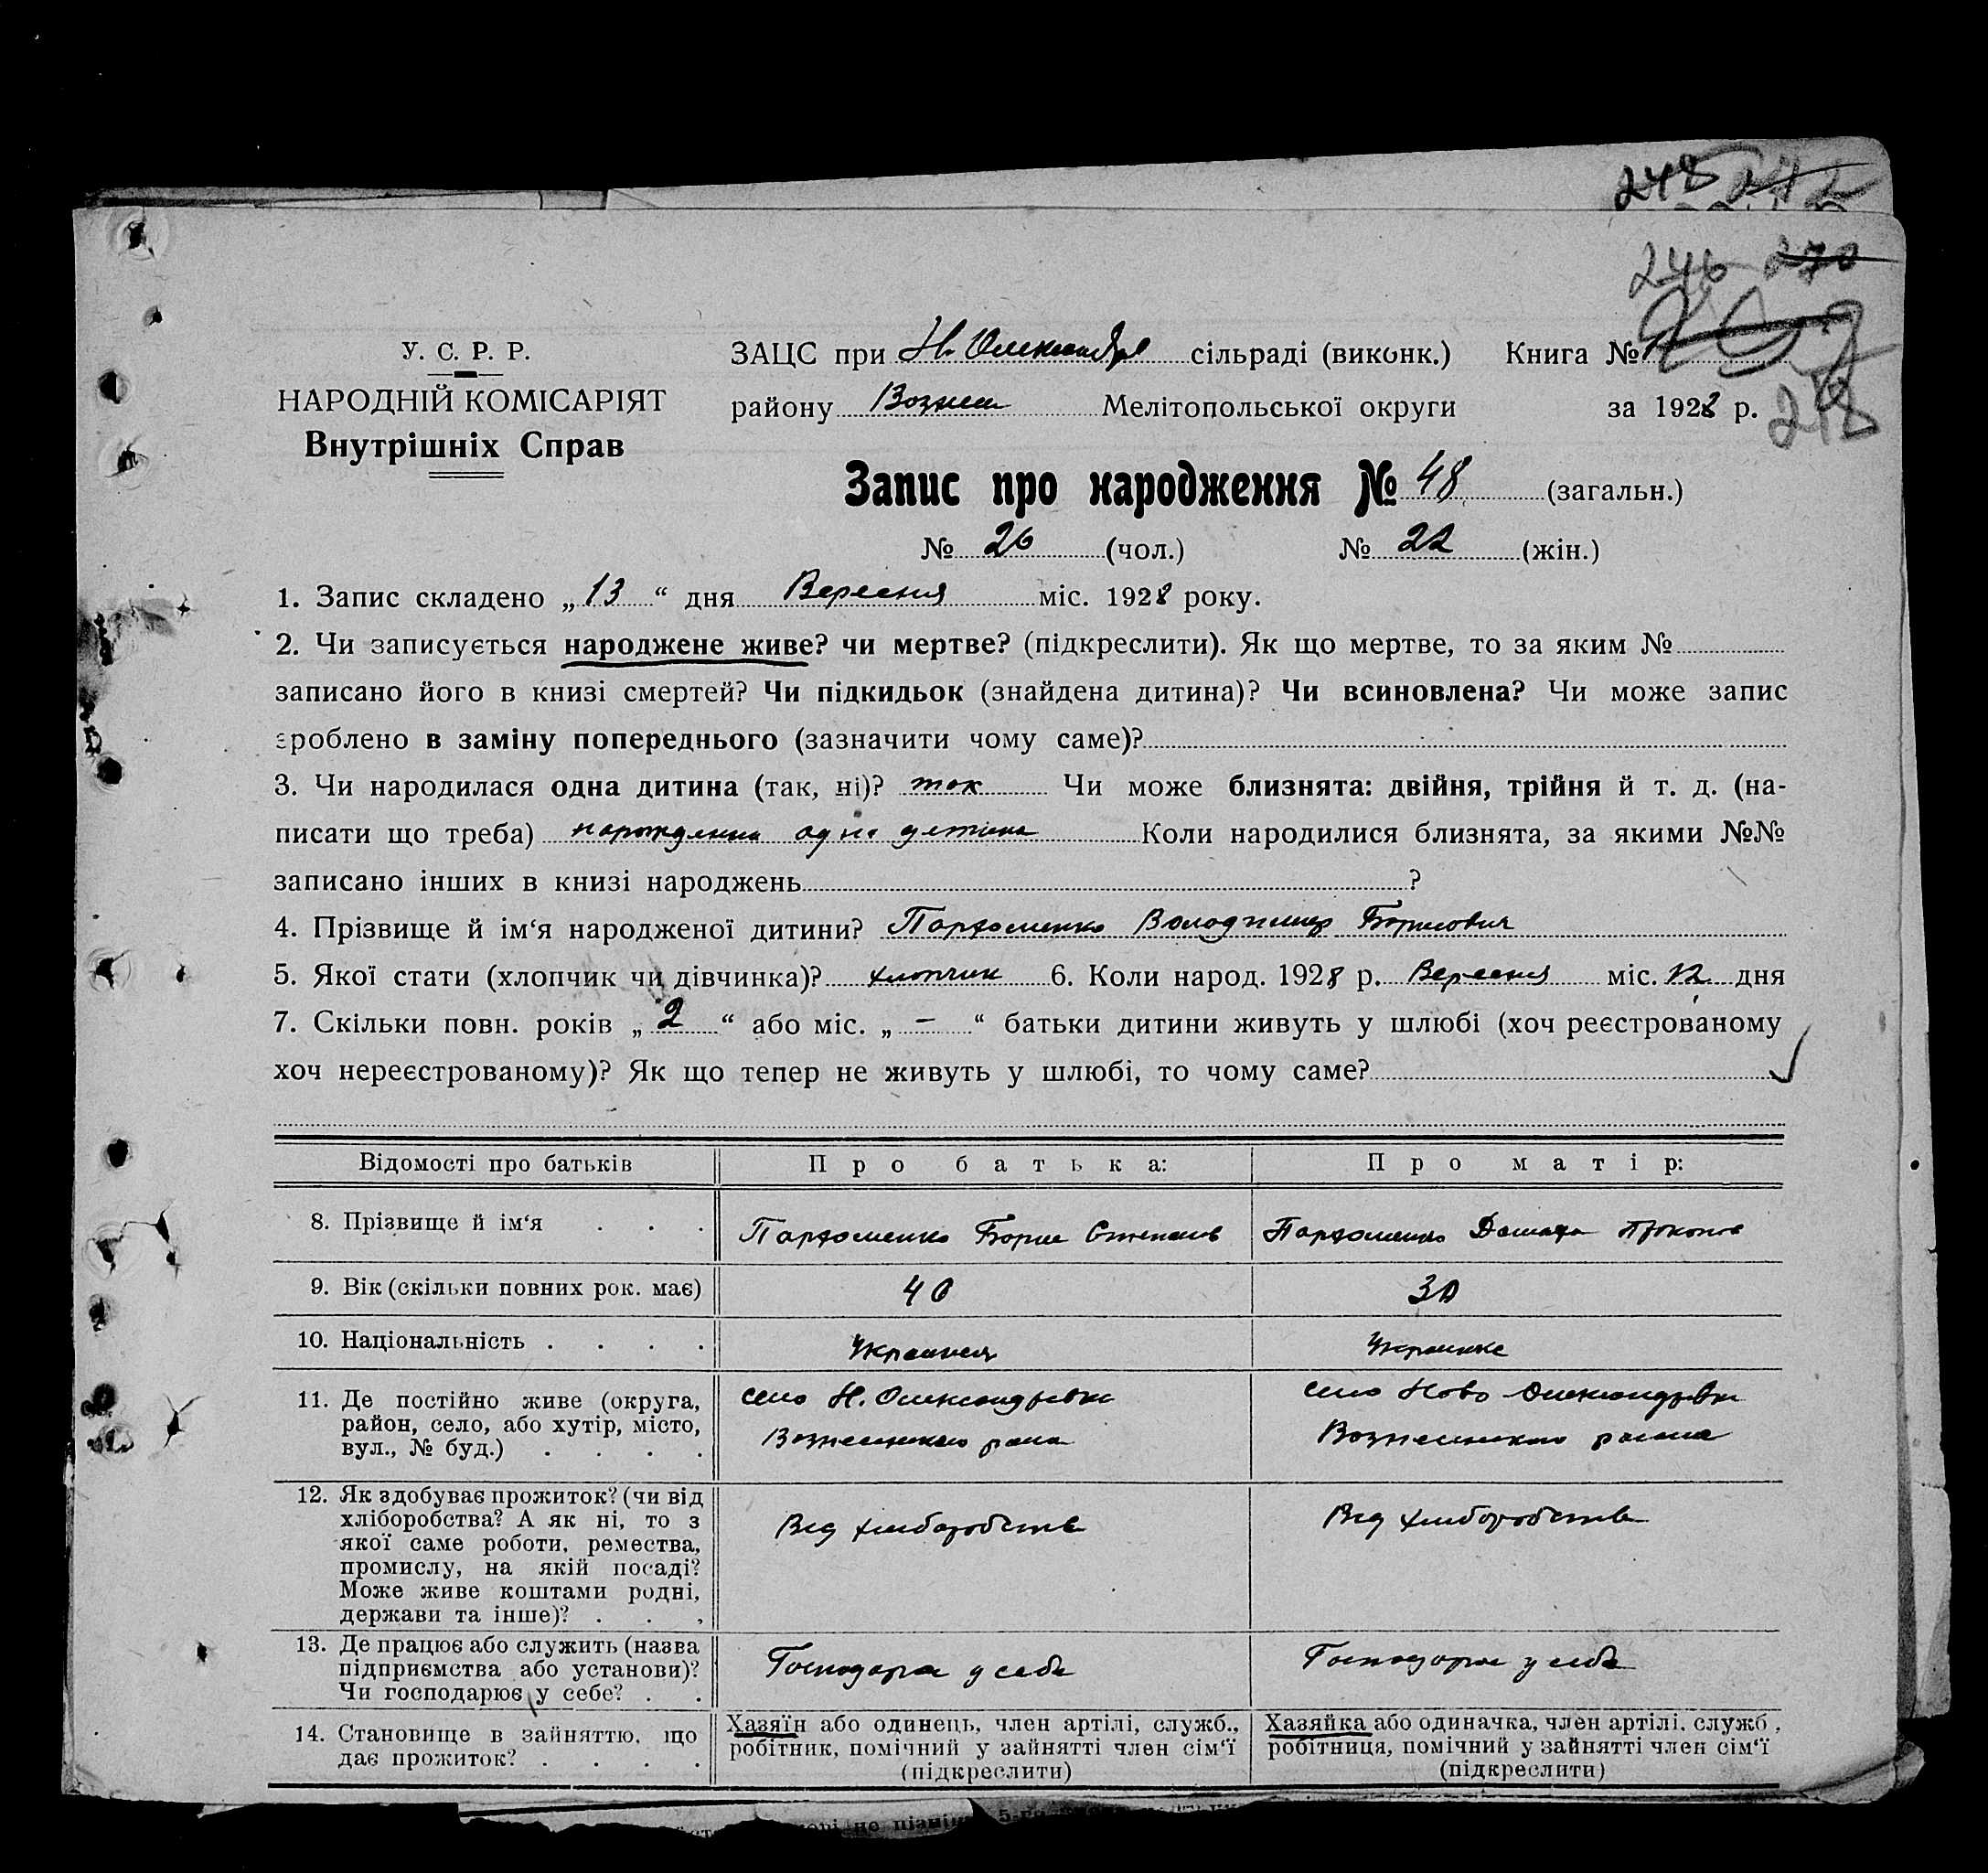 248 272
246 270
218
У. С. Р. Р.
НАРОДНІЙ КОМІСАРІЯТ
Внутрішніх Справ
ЗАЦС при Н. Олександр сільраді (виконк.) Книга №
району Вознес Мелітопольської округи за 1928 р.
Запис про народження № 48 (загальн.)
№ 26 (чол.) № 22 (жін.)
1. Запис складено „13“ дня Вересня міс. 1928 року.
2. Чи записується народжене живе? чи мертве? (підкреслити). Як що мертве, то за яким №
записано його в книзі смертей? Чи підкидьок (знайдена дитина)? Чи всиновлена? Чи може запис
зроблено в заміну попереднього (зазначити чому саме)?
3. Чи народилася одна дитина (так, ні)? так Чи може близнята: двійня, трійня й т. д. (на-
писати що треба) народженна одна дитина Коли народилися близнята, за якими №№
записано інших в книзі народжень ?
4. Прізвище й ім‘я народженої дитини? Пархоменко Володимир Борисович
5. Якої стати (хлопчик чи дівчинка)? хлопчик 6. Коли народ. 1928 р. Вересня міс. 12 дня
7. Скільки повн. років „2“ або міс. „—“ батьки дитини живуть у шлюбі (хоч реєстрованому
хоч нереєстрованому)? Як що тепер не живуть у шлюбі, то чому саме?
Відомості про батьків Про батька: Про матір:
8. Прізвище й ім‘я . . . Пархоменко Борис Степанов Пархоменко Домаха Проконов
9. Вік (скільки повних рок. має) 40 30
10. Національність . . . . Украинец Украинка
11. Де постійно живе (округа, село Н. Олександрівка село Ново Олександрівка
район, село, або хутір, місто, Вознесенського рана Вознесенского раена
вул., № буд.) . . . .
12. Як здобуває прожиток? (чи від
хліборобства? А як ні, то з Від хлиборобства Від хлиборобства
якої саме роботи, ремества,
промислу, на якій посаді?
Може живе коштами родні,
держави та інше)? . . .
13. Де працює або служить (назва
підприємства або установи)? Господарює у себе Господарює у себе
Чи господарює у себе? . .
14. Становище в зайняттю, що Хазяїн або одинець, член артілі, служб., Хазяйка або одиначка, член артілі, служб.,
дає прожиток? . . . . робітник, помічний у зайнятті член сім‘ї робітниця, помічний у зайнятті член сім‘ї
(підкреслити) (підкреслити)